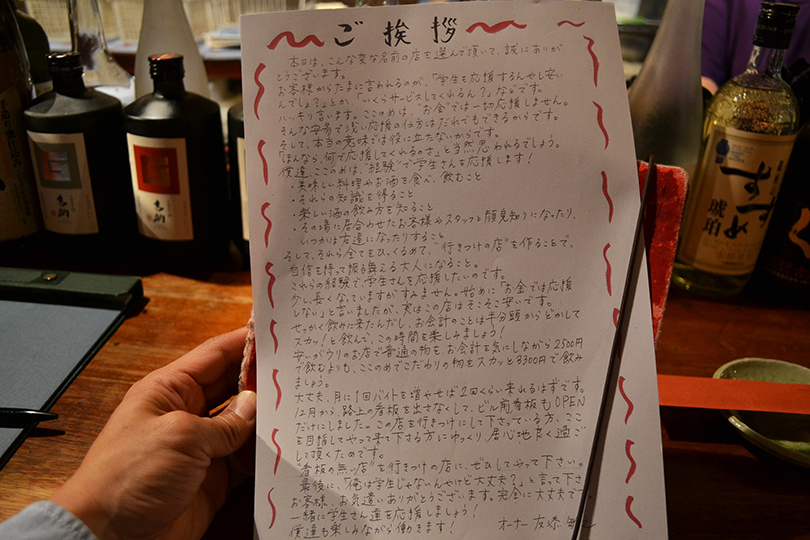 ご挨拶
本日は、こんな変な名前の店を選んで頂いて、誠にありが
とうございます。
お客様からたまに言われるのが、"学生を応援するんやし安い
んでしょ?"とか、"いくらサービスしてくれるん?"などです。
ハッキリ言います。ここのめは、"お金"では一切応援しません。
そんな安易で浅い応援の仕方はだれでもできるからです。
そして、本当の意味では役に立たないからです。
「ほんなら、何で応援してくれるのさ」と当然思われるでしょう。
僕達、ここのめは、"経験"で学生さんを応援します!
・美味しい料理やお酒を食べ、飲むこと
・それらの知識を得ること
・楽しい酒の飲み方を知ること
・その場に居合わせたお客様やスタッフと顔見知りになったり、
いつかは友達になったりすること
そして、それら全てをひっくるめて、"行きつけの店"を作ることで、
自信を持って振る舞える大人になること。
これらの経験で、学生さんを応援したいのです。
少し長くなっていますがすみません。始めに"お金では応援
しない"と言いましたが、実はこの店はそこそこ安いです。
せっかく飲みに来たんだし、お会計のことは半分頭からどかして
スカッ!と飲んで、この時間を楽しみましょう!
安いがウリのお店で普通の物を、お会計を気にしながら2500円
で飲むよりも、ここのめでこだわりの物をスカッと3300円で飲み
ましょう。
大丈夫、月に1回バイトを増やせば2回くらい来れるはずです。
12月から、路上の看板を出さなくして、ビル前看板もOPEN
だけにしました。この店を行きつけにして下さっている方、ここ
を目指してやって来て下さる方にゆっくり、居心地良く過ご
して頂くためです。
"看板の無い店"を行きつけの店に、ぜひしてやって下さい。
最後に、「俺は学生じゃないんやけど大丈夫?」と言って下さ
お客様、お気遣いありがとうございます。完全に大丈夫で
一緒に学生さん達を応援しましょう!
僕達も楽しみながら働きます!
オーナー 友添
すずめ
琥珀